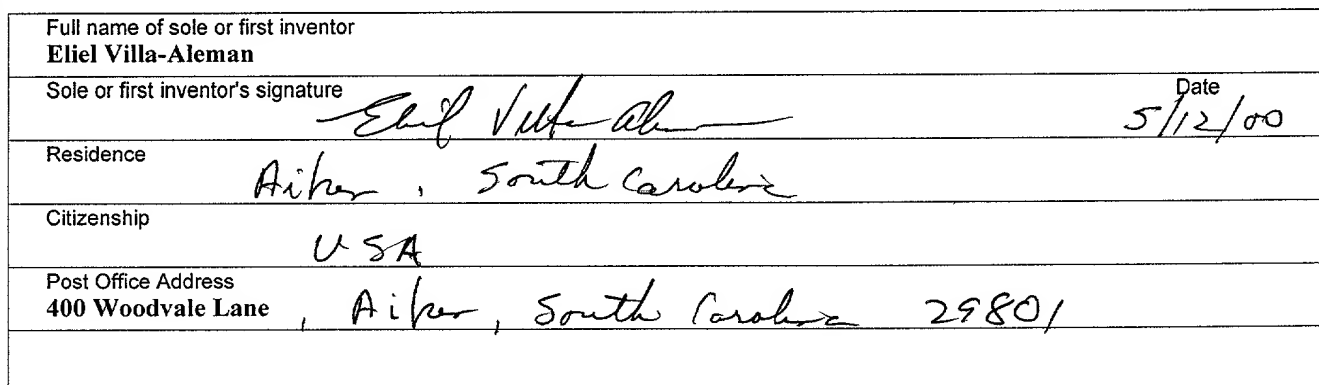 Full name of sole or first inventor
Eliel Villa-Aleman
Sole or first inventor's signature
Eliel Villa-Aleman
Date
5/12/00
Residence
Aiken, South Carolina
Citizenship
USA
Post Office Address
400 Woodvale Lane, Aiken, South Carolina 29801